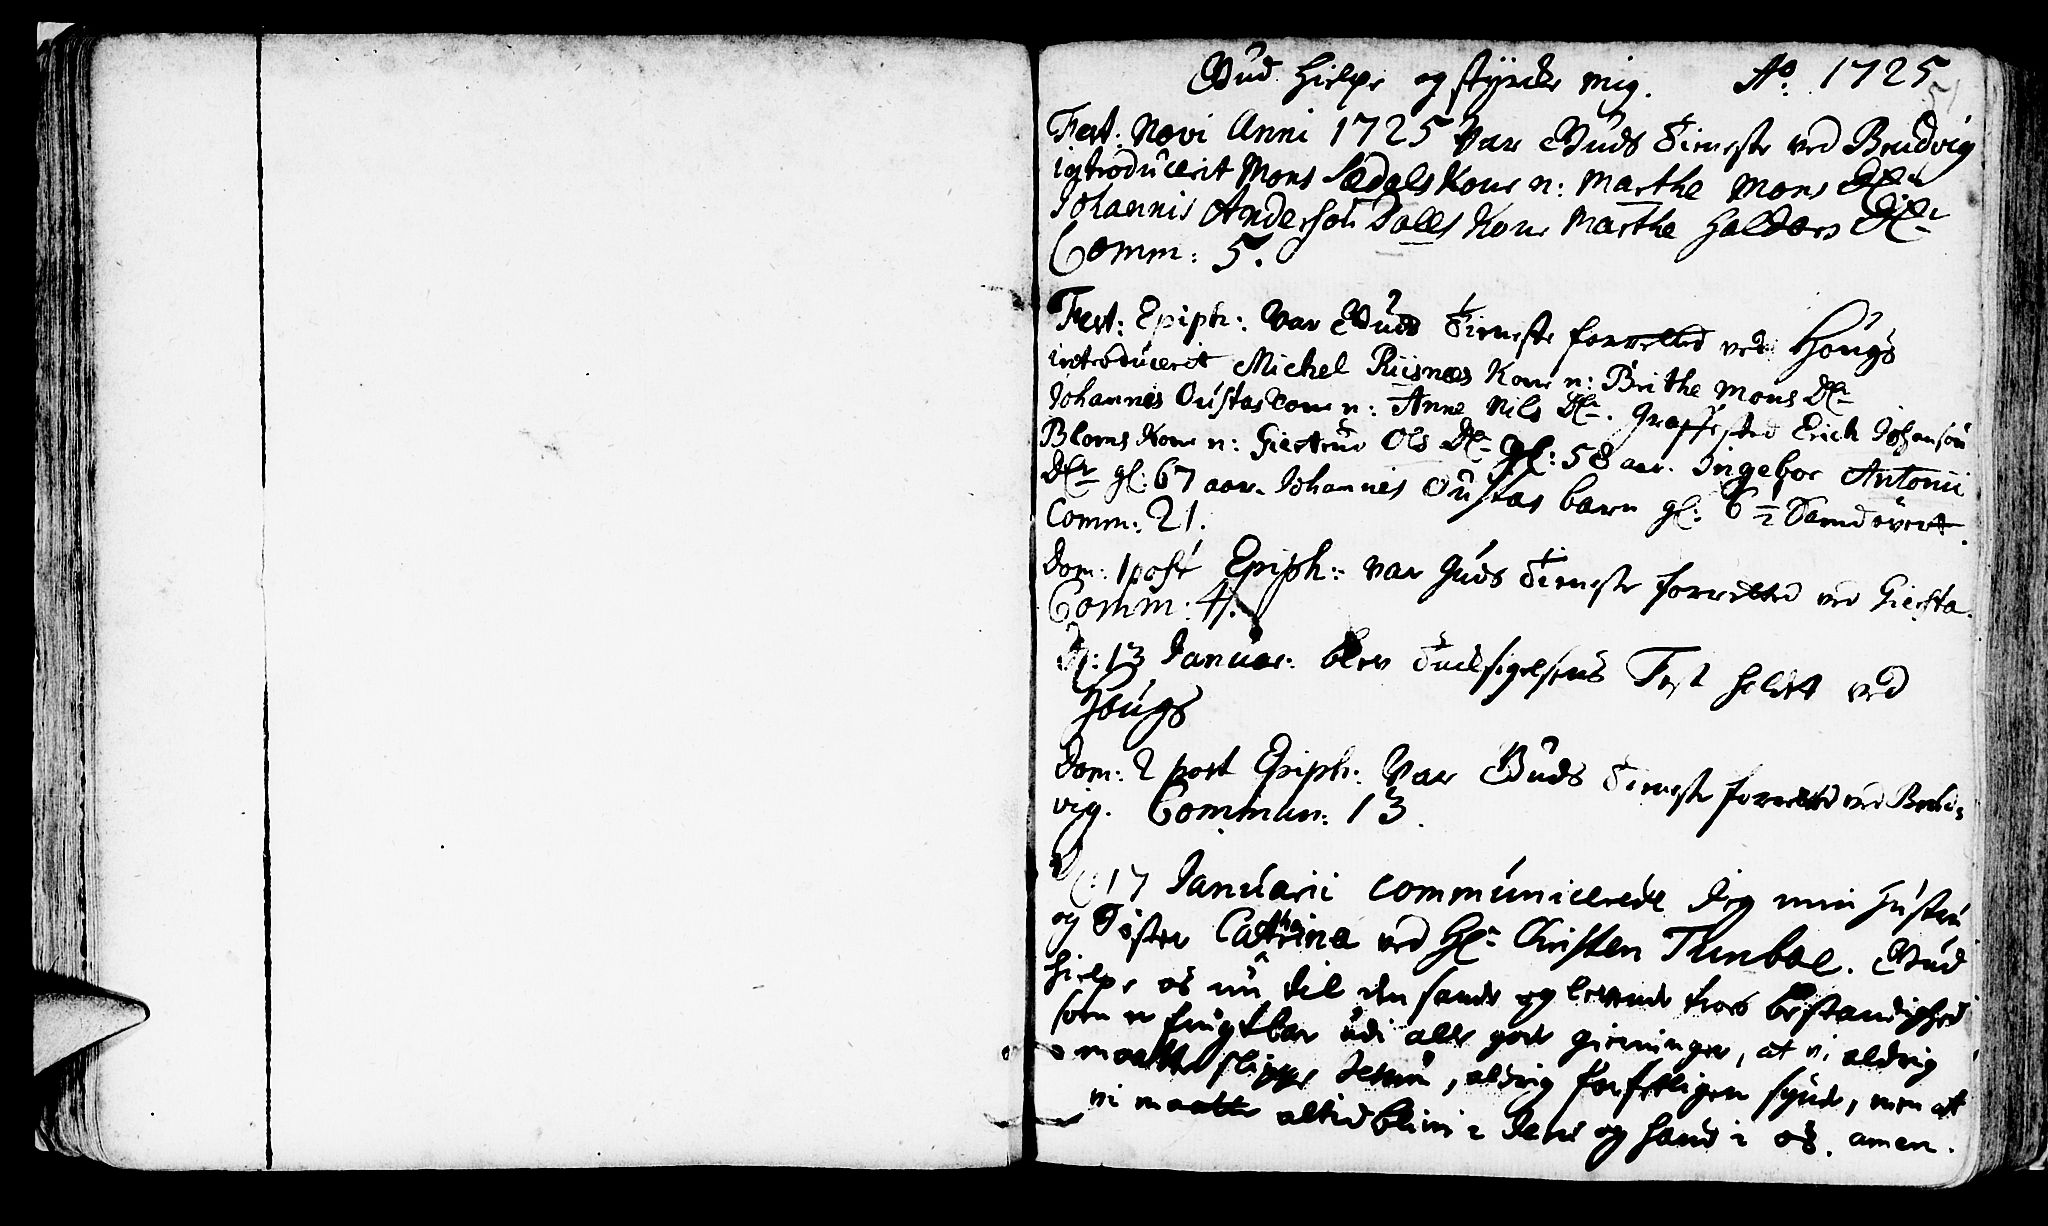 Gud hielpe og styrcke mig. Aº. 1725
51
Fest: Novi Anni 1725 Var Guds tieneste ved Brudvig
introducerit Mons Sædals Kone n: Marthe Mons Dtr
Johannis Anderson Dalls Kone Marthe Haldors Dtr
Comm: 5.
Fest: Epiph: Var Guds tieneste forretted ved Hougs
introducerit Michel Riisnæs Kone n: Brithe Mons Dtr
Johannes Oustas Kone n: Anne Nils Dtr. Graffæsted Erich Johanson
Bloms Kone n: Giertrud Ols Dtr gl: 58 aar. Ingebor Antonii
Dtr gl: 67 aar. Johannes Oustas barn gl: 6
Comm: 21.
Dom: 1 post Epiph: var Guds tieneste forretted ved Giersta.
Comm: 4.
D: 13 Januar: blev Tacksigelsens Fest holdt ved
Hougs
Dom: 2 post Epiph: Var Guds tieneste forretted ved Brud:
vig. Commun: 13.
D: 17 Januarii communicerede Jeg min Hustru
og Søster Cathrina ved Hr Christen Teneboe. Gud
hielpe os nu til den sande og levende troes bestandighed
som er frugtbar udi alle gode gierninger, at vi aldrig
maatte slippe Jesum, aldrig forsetligen synde, men at
vi maatte altid blive i Jesu og hand i os. amen.